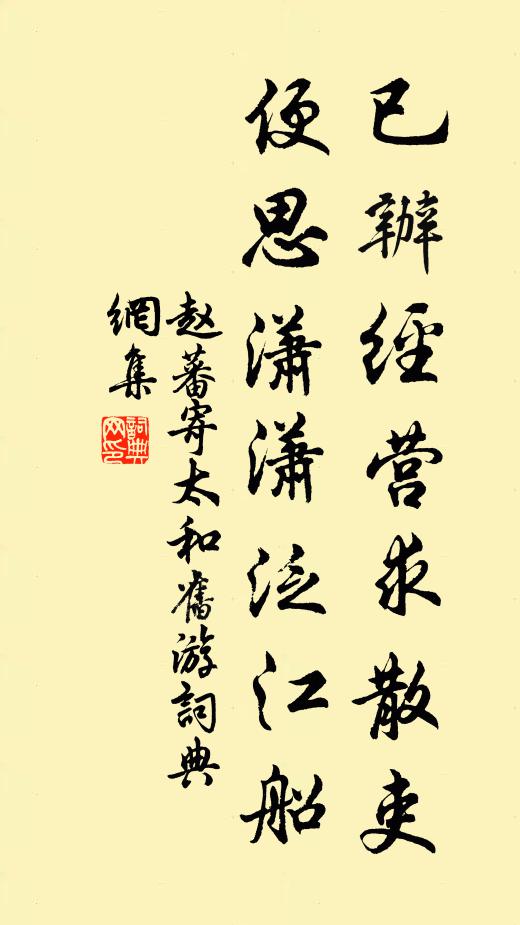 已辦經营求散吏
便思瀟瀟泛江船
赵蕃寄太和舊游詞典
網集
詞典
网印